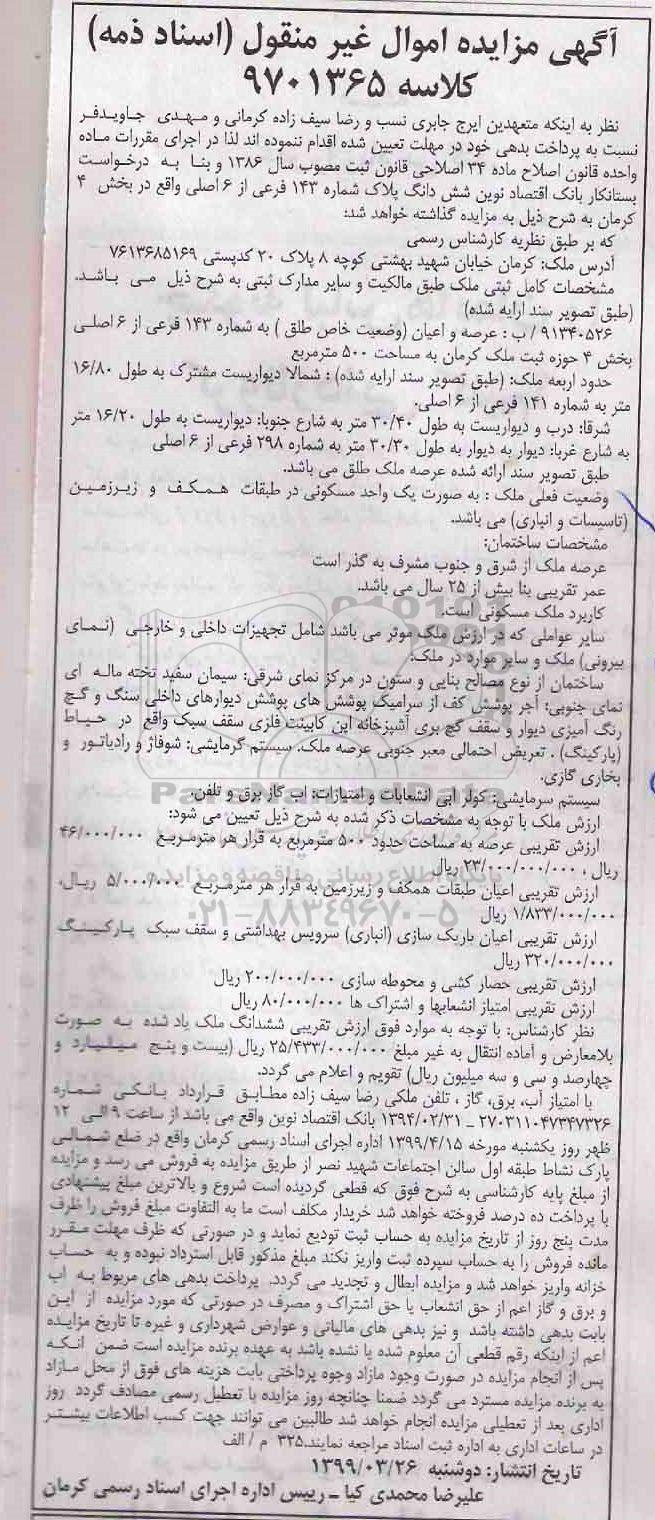 آگهی مزایده اموال غیر منقول (اسناد ذمه)
کلاسه ۹۷۰۱۳۶۵
نظر به اینکه متعهدین ایرج جابری نسب و رضا سیف زاده کرمانی و مهدی جاویدفر
نسبت به پرداخت بدهی خود در مهلت تعیین شده اقدام ننموده اند لذا در اجرای مقررات ماده
واحده قانون اصلاح ماده ۳۴ اصلاحی قانون ثبت مصوب سال ۱۳۸۶ و بنا به درخواست
بستانکار بانک اقتصاد نوین شش دانگ پلاک شماره ۱۴۳ فرعی از ۶ اصلی واقع در بخش ۴
کرمان به شرح ذیل به مزایده گذاشته خواهد شد:
که بر طبق نظریه کارشناس رسمی
آدرس ملک: کرمان خیابان شهید بهشتی کوچه ۸ پلاک ۲۰ کدپستی ۷۶۱۳۶۸۵۱۶۹
مشخصات کامل ثبتی ملک طبق مالکیت و سایر مدارک ثبتی به شرح ذیل می باشد.
(طبق تصویر سند ارایه شده)
۹۱۳۴۰۵۲۶ / ب : عرصه و اعیان (وضعیت خاص طلق ) به شماره ۱۴۳ فرعی از ۶ اصلی
بخش ۴ حوزه ثبت ملک کرمان به مساحت ۵۰۰ مترمربع
حدود اربعه ملک: (طبق تصویر سند ارایه شده) : شمالا دیواریست مشترک به طول ۱۶/۸۰
متر به شماره ۱۴۱ فرعی از ۶ اصلی.
شرقا: درب و دیواریست به طول ۳۰/۴۰ متر به شارع جنوبا: دیواریست به طول ۱۶/۲۰ متر
به شارع غربا: دیوار به دیوار به طول ۳۰/۳۰ متر به شماره ۲۹۸ فرعی از ۶ اصلی
طبق تصویر سند ارائه شده عرصه ملک طلق می باشد.
وضعیت فعلی ملک : به صورت یک واحد مسکونی در طبقات همکف و زیرزمین
(تاسیسات و انباری) می باشد.
مشخصات ساختمان:
عرصه ملک از شرق و جنوب مشرف به گذر است
عمر تقریبی بنا بیش از ۲۵ سال می باشد.
کاربرد ملک مسکونی است.
سایر عواملی که در ارزش ملک موثر می باشد شامل تجهیزات داخلی و خارجی (نمای
بیرونی) ملک و سایر موارد در ملک:
ساختمان از نوع مصالح بنایی و ستون در مرکز نمای شرقی: سیمان سفید تخته ماله ای
نمای جنوبی: آجر پوشش کف از سرامیک پوشش های پوشش دیوارهای داخلی سنگ و گچ
رنگ آمیزی دیوار و سقف گچ بری آشپزخانه اپن کابینت فلزی سقف سبک واقع در حیاط
(پارکینگ) . تعریض احتمالی معبر جنوبی عرصه ملک. سیستم گرمایشی: شوفاژ و رادیاتور و
بخاری گازی.
سیستم سرمایشی: کولر آبی انشعابات و امتیازات: آب گاز برق و تلفن.
ارزش ملک با توجه به مشخصات ذکر شده به شرح ذیل تعیین می شود:
ارزش تقریبی عرصه به مساحت حدود ۵۰۰ مترمربع به قرار هر مترمربع ۴۶/۰۰۰/۰۰۰
ریال ، ۲۳/۰۰۰/۰۰۰/۰۰۰ ریال
ارزش تقریبی اعیان طبقات همکف و زیرزمین به قرار هر مترمربع ۵/۰۰۰/۰۰۰ ریال،
۱/۸۳۳/۰۰۰/۰۰۰ ریال
ارزش تقریبی اعیان باریک سازی (انباری) سرویس بهداشتی و سقف سبک پارکینگ
۳۲۰/۰۰۰/۰۰۰ ریال
ارزش تقریبی حصار کشی و محوطه سازی ۲۰۰/۰۰۰/۰۰۰ ریال
ارزش تقریبی امتیاز انشعابها و اشتراک ها ۸۰/۰۰۰/۰۰۰ ریال
نظر کارشناس: با توجه به موارد فوق ارزش تقریبی ششدانگ ملک یاد شده به صورت
بلامعارض و آماده انتقال به غیر مبلغ ۲۵/۴۳۳/۰۰۰/۰۰۰ ریال (بیست و پنج میلیارد و
چهارصد و سی و سه میلیون ریال) تقویم و اعلام می گردد.
با امتیاز آب، برق، گاز ، تلفن ملکی رضا سیف زاده مطابق قرارداد بانکی شماره
۲۷۰۳۱۱۰۴۷۳۴۷۳۲۶ ـ ۱۳۹۴/۰۲/۳۱ بانک اقتصاد نوین واقع می باشد از ساعت ۹ الی ۱۲
ظهر روز یکشنبه مورخه ۱۳۹۹/۴/۱۵ اداره اجرای اسناد رسمی کرمان واقع در ضلع شمالی
پارک نشاط طبقه اول سالن اجتماعات شهید نصر از طریق مزایده به فروش می رسد و مزایده
از مبلغ پایه کارشناسی به شرح فوق که قطعی گردیده است شروع و بالاترین مبلغ پیشنهادی
با پرداخت ده درصد فروخته خواهد شد خریدار مکلف است ما به التفاوت مبلغ فروش را ظرف
مدت پنج روز از تاریخ مزایده به حساب ثبت تودیع نماید و در صورتی که ظرف مهلت مقرر
مانده فروش را به حساب سپرده ثبت واریز نکند مبلغ مذکور قابل استرداد نبوده و به حساب
خزانه واریز خواهد شد و مزایده ابطال و تجدید می گردد. پرداخت بدهی های مربوط به آب
و برق و گاز اعم از حق انشعاب یا حق اشتراک و مصرف در صورتی که مورد مزایده از این
بابت بدهی داشته باشد و نیز بدهی های مالیاتی و عوارض شهرداری و غیره تا تاریخ مزایده
اعم از اینکه رقم قطعی آن معلوم شده یا نشده باشد به عهده برنده مزایده است ضمن آنکه
پس از انجام مزایده در صورت وجود مازاد وجوه پرداختی بابت هزینه های فوق از محل مازاد
به برنده مزایده مسترد می گردد ضمنا چنانچه روز مزایده با تعطیل رسمی مصادف گردد روز
اداری بعد از تعطیلی مزایده انجام خواهد شد طالبین می توانند جهت کسب اطلاعات بیشتر
در ساعات اداری به اداره ثبت اسناد مراجعه نمایند.۳۲۵ م / الف
تاریخ انتشار: دوشنبه ۱۳۹۹/۰۳/۲۶
علیرضا محمدی کیا ـ رییس اداره اجرای اسناد رسمی کرمان
ParsNamadData
پایگاه اطلاع رسانی مناقصه و مزایده
۰۲۱-۸۸۳۴۹۶۷۰-۵